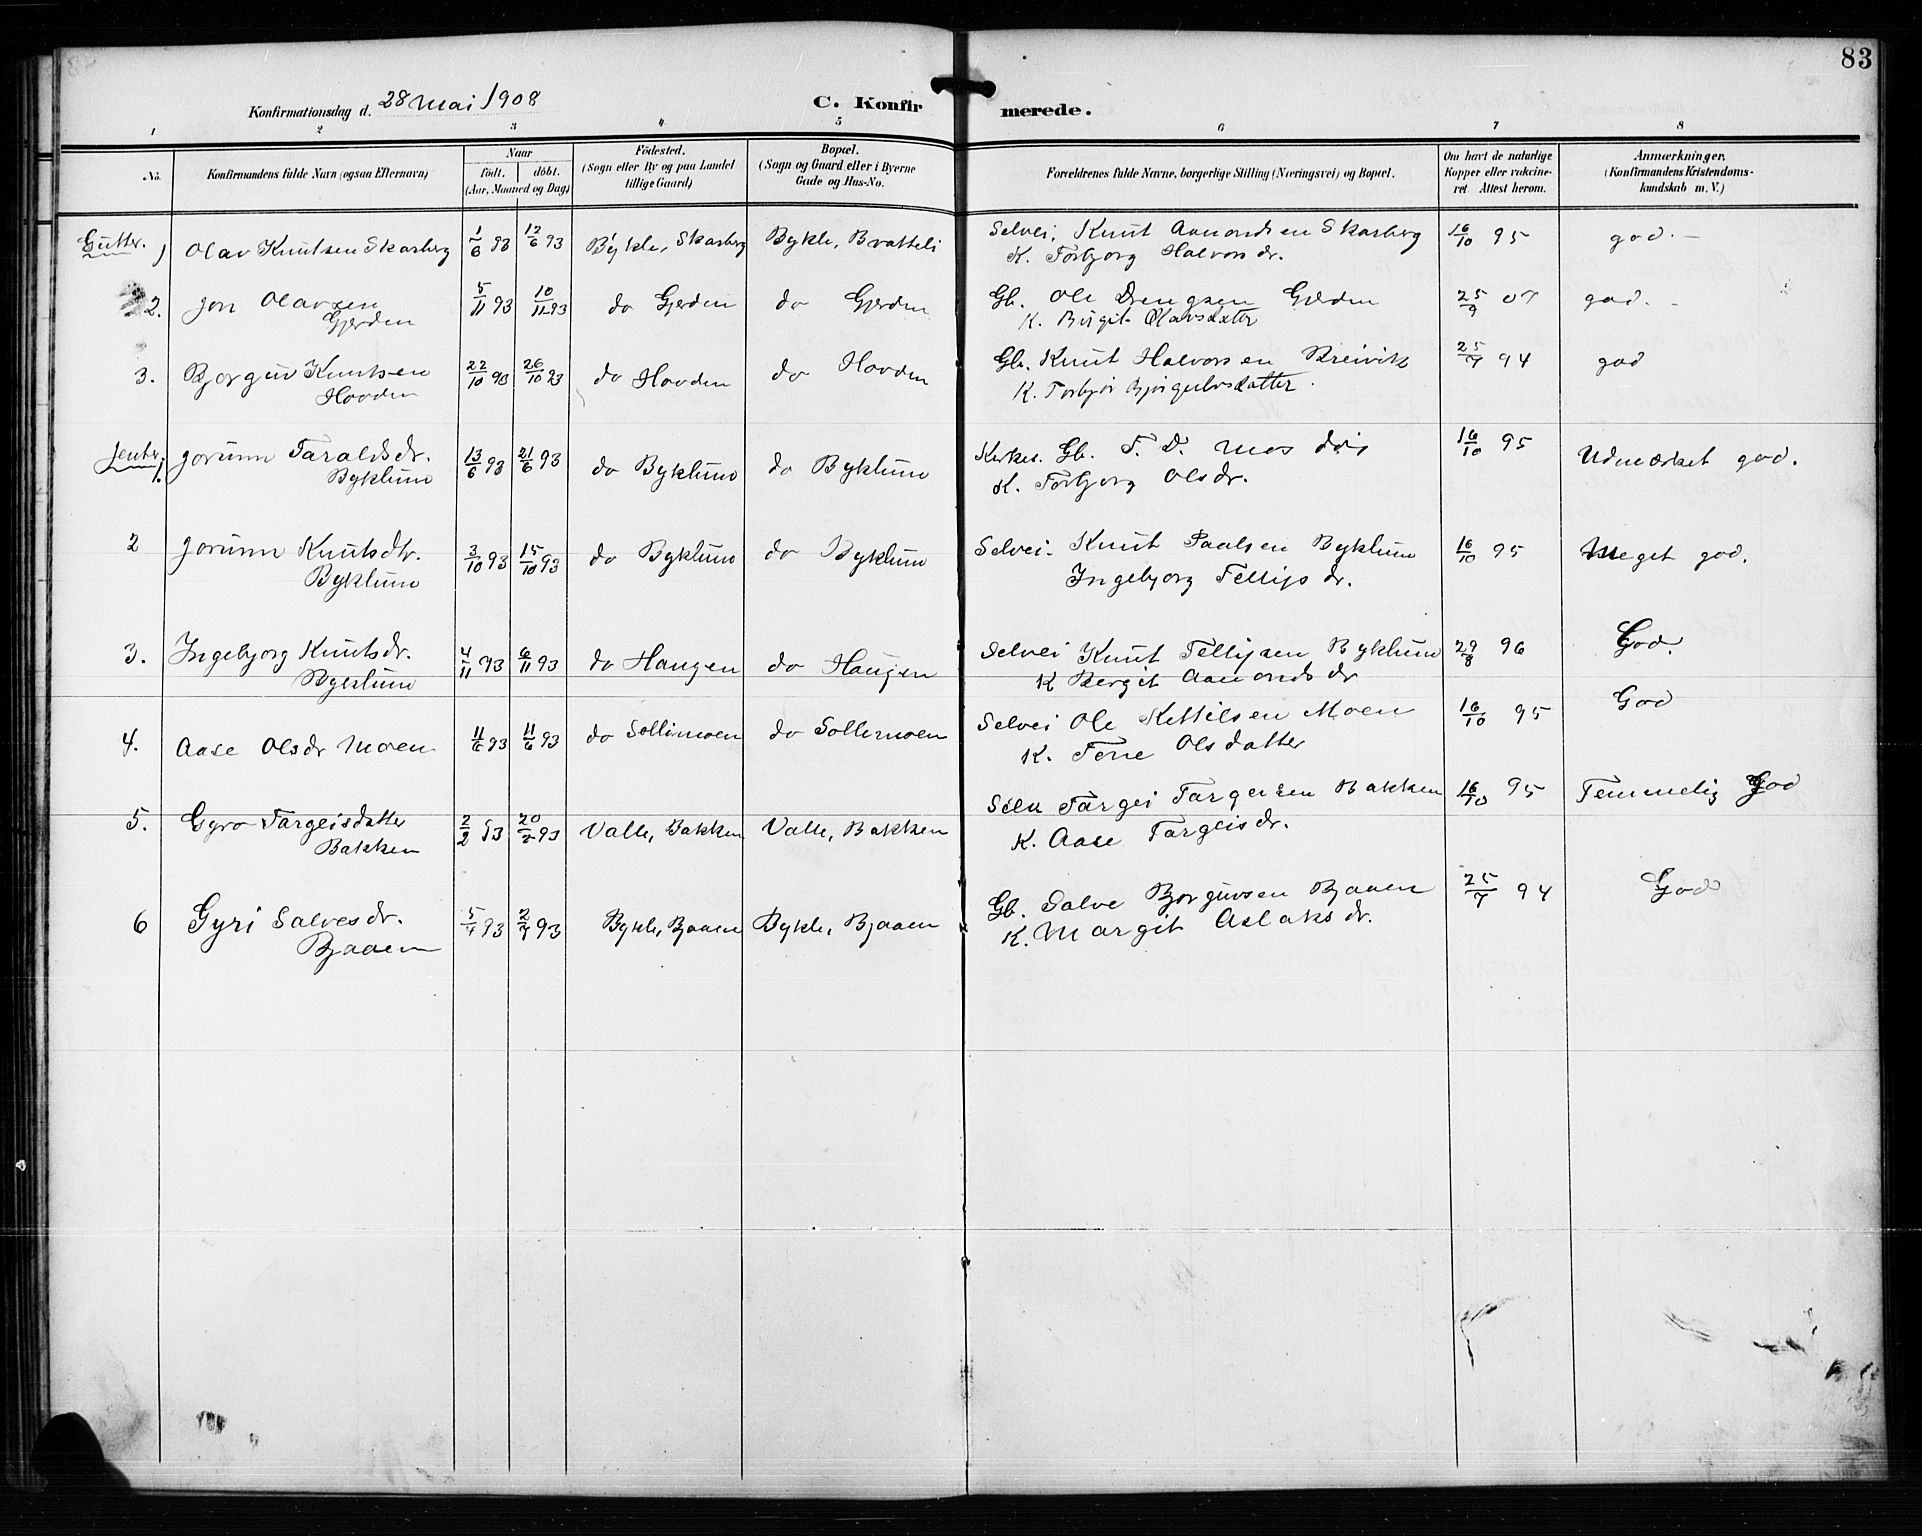 83
Konfirmationsdag d. 28 Mai 1908 C. Konfirmerede.
1 2 3 4 5 6 7 8
No. Konfirmandens fulde Navn (ogsaa Efternavn) Naar födt. döbt. (Aar, Maaned og Dag) Födested. (Sogn eller By og paa Landet tillige Gaard) Bopæl. (Sogn og Gaard eller i Byerne Gade og Hus-No. Forældrenes fulde Navne, borgerlige Stilling (Næringsvei) og Bopæl. Om havt de naturlige Kopper eller vaccineret. Attest herom. Anmærkninger. (Konfirmandens Kristendomskundskab m. V.)
Gutter. 1 Olav Knutsen Skarberg 1/6 93 12/6 93 Bykle, Skarberg Bykle, Bratteli Selvei. Knut Aamondsen Skarberg 16/10 95 god. -
K. Torbjorg Halvorsdr.
2. Jon Olavsen 5/11 93 10/11 93 do Gjerden do Gjerden Gb. Ole Drengsen Gjerden 25/9 07 god. -
Gjerden K. Birgit Olavsdatter
3. Bjorguv Knutsen 22/10 93 26/10 93 do Hovden do Hovden Gb. Knut Halvorsen Breivik 25/7 94 god
Hovden K. Torbjør Bjørgulvsdatter
Jenter. 1. Jorunn Taraldsdr. 13/6 93 21/6 93 do Byklum do Byklum Kirkes. Gb. T. D. Mos 16/10 95 Udmærket god.
Byklum K. Torbjorg Olsdr.
2 Jorunn Knutsdtr. 3/10 93 15/10 93 do Byklum do Byklum Selvei. Knut Paalsen Byklum 16/10 95 Meget god.
Byklum Ingebjorg Tellijs dr.
3. Ingebjorg Knutsdr. 4/11 93 6/11 93 do Haugen do Haugen Selvei Knut Tellijsen Byklum 29/8 96 God.
Byklum K Bergit Aamonds dr
4. Aase Olsdr Moen 11/6 93 11/6 93 do Sollimoen do Sollimoen Selvei Ole Kettilsen Moen 16/10 95 God
K. Tone Olsdatter
5. Gyro Targeisdatter 2/2 93 20/2 93 Valle, Bakken Valle, Bakken Selv Targei Targeisen Bakken 16/10 95 Temmelig God
Bakken K. Aase Targeisdr.
6 Gyri Salvesdr. 93 2/7 93 Bykle, Bjaaen Bykle, Bjaaen Gb. Salve Bjorguvsen Bjaaen 25/7 94 God
Bjaaen K. Margit Aslaksdr.